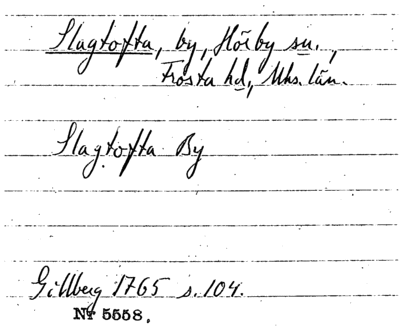 Slagtofta, by, Hörby sn.,
Frosta hd, Mhs. län.
Slagtofta By
Gillberg 1765 s. 104.
Nr 5558.